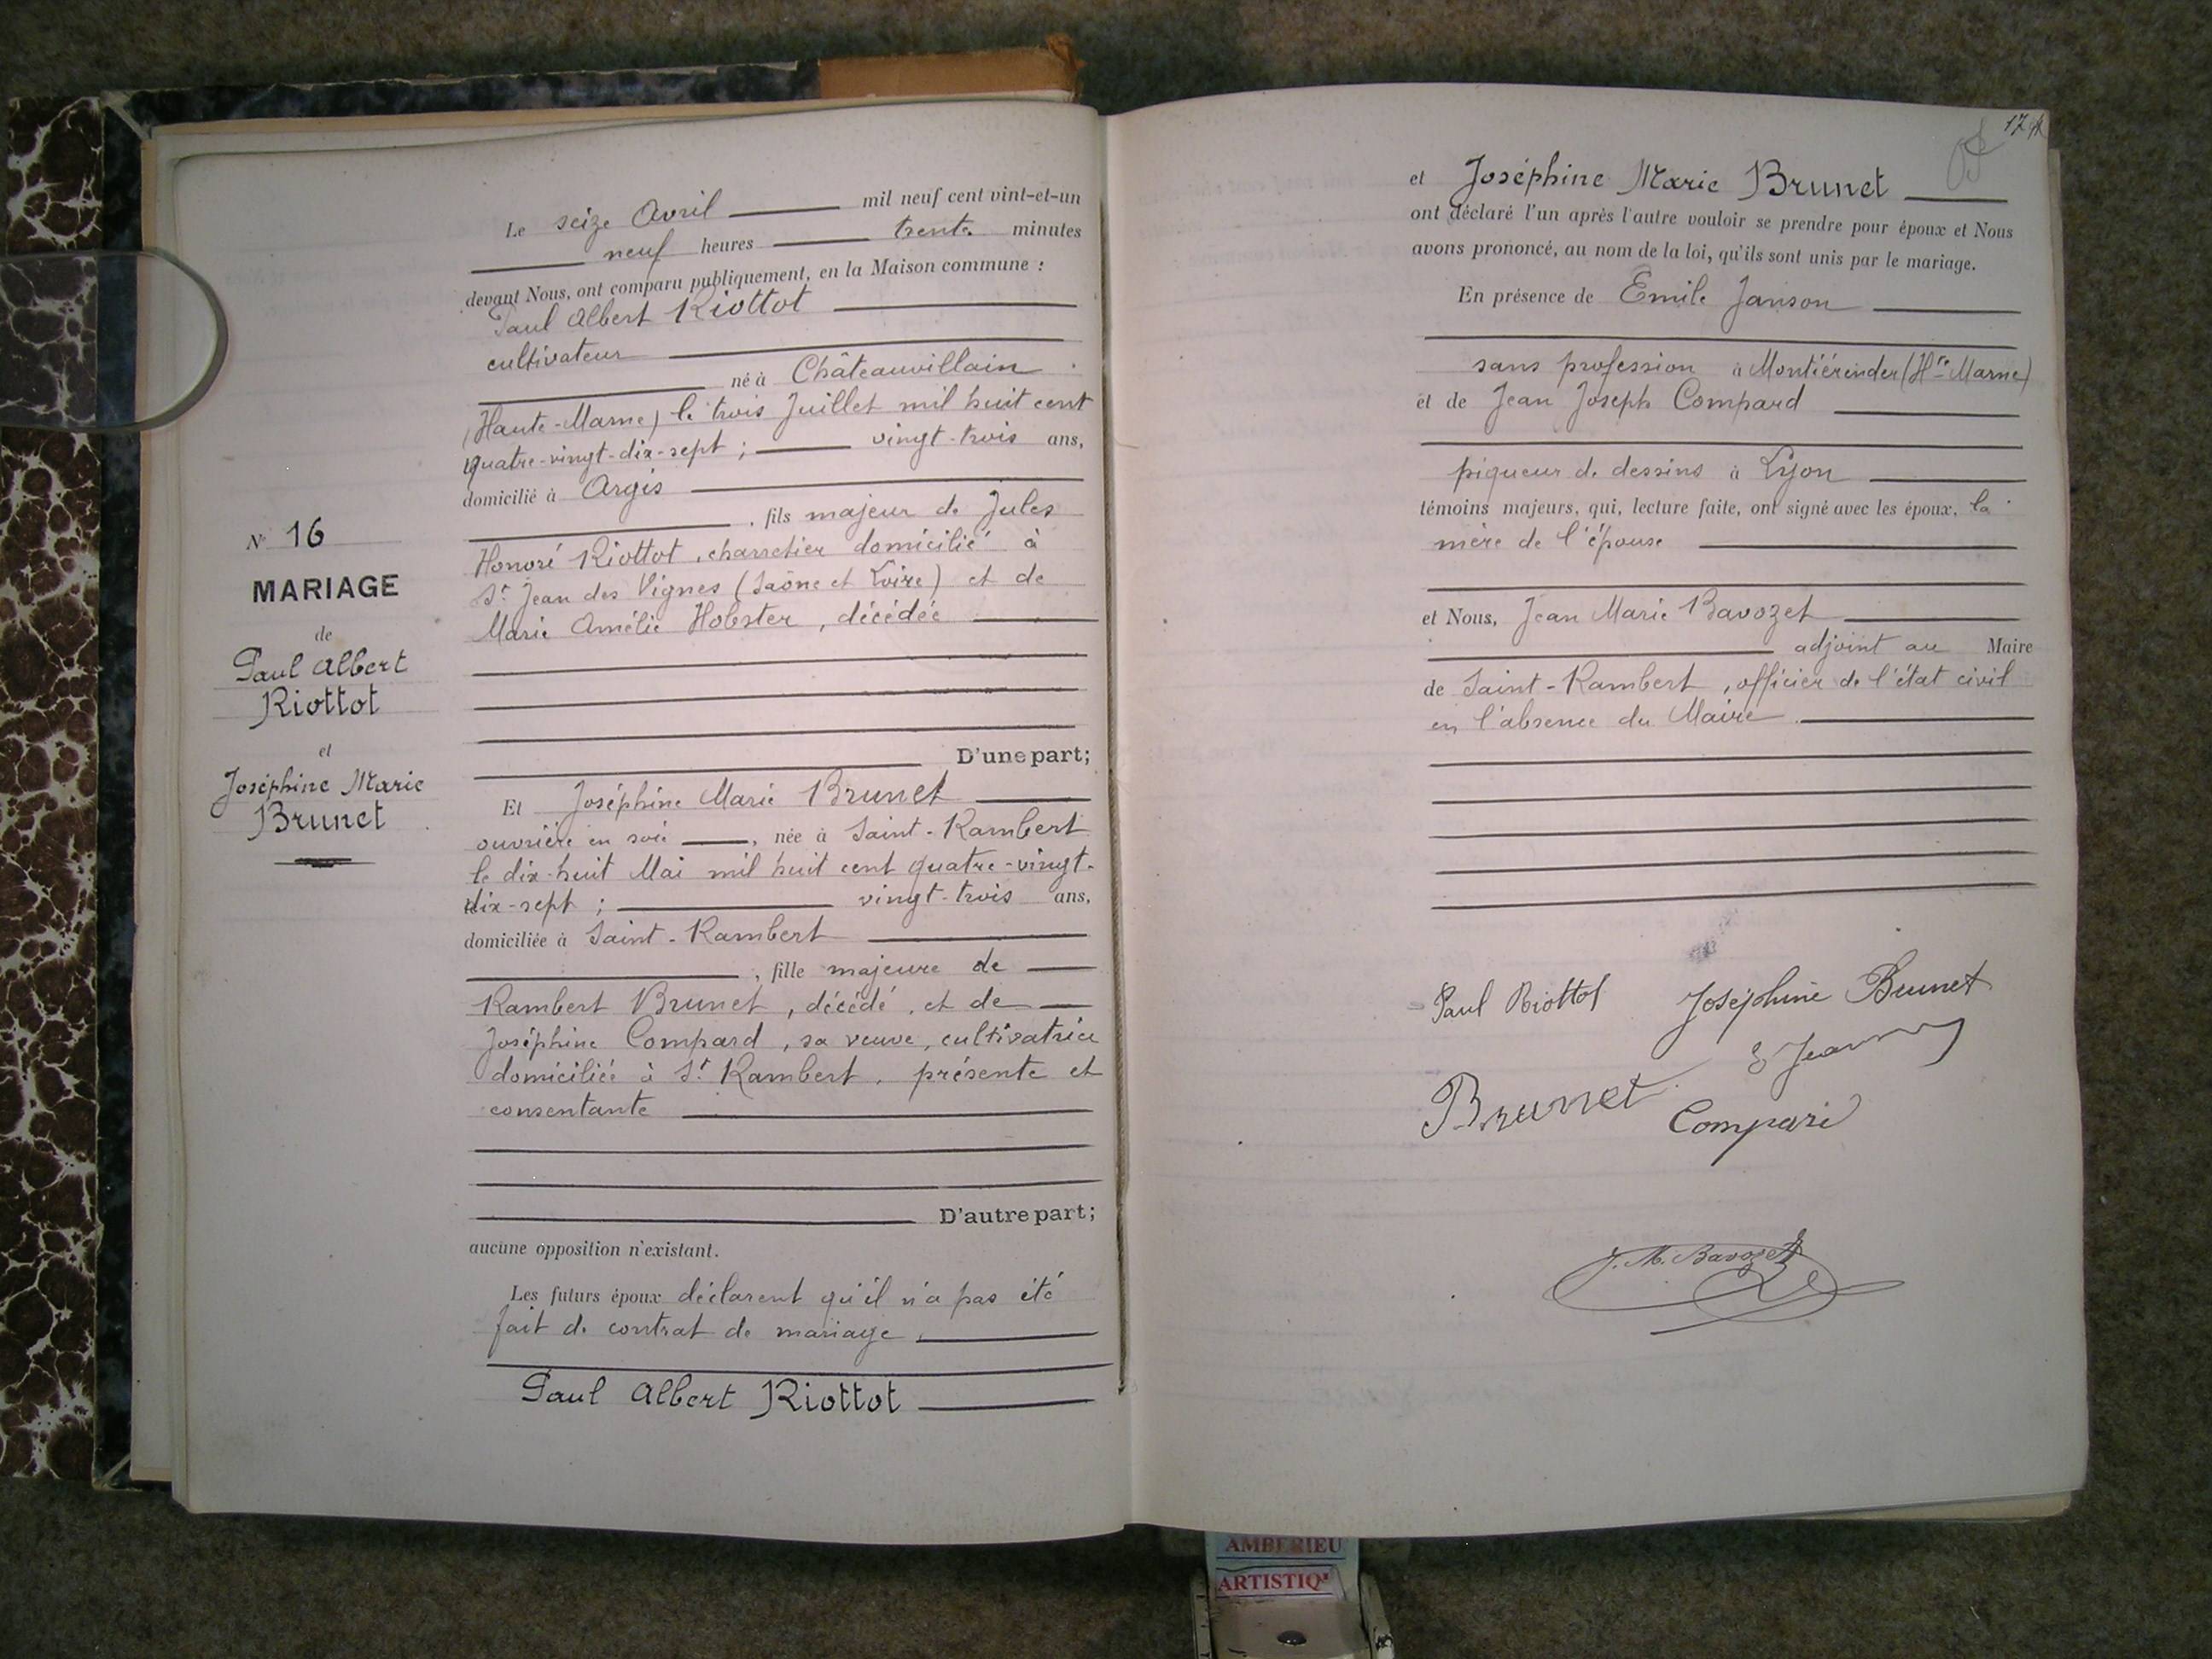 N° 16
MARIAGE
de
Paul Albert
Riottot
et
Joséphine Marie
Brunet
Le seize Avril mil neuf cent vint-et-un
neuf heures trente minutes
devant Nous, ont comparu publiquement, en la Maison commune :
Paul Albert Riottot
cultivateur
né à Châteauvillain
(Haute-Marne) le trois Juillet mil huit cent
quatre-vingt-dix-sept ; vingt-trois ans,
domicilié à Argis
, fils majeur de Jules
Honoré Riottot, charretier domicilié à
St Jean des Vignes (Saône et Loire) et de
Marie Amélie Holster, décédée
D'une part;
Et Joséphine Marie Brunet
ouvrière en soie, née à Saint-Rambert
le dix-huit Mai mil huit cent quatre-vingt-
dix-sept ; vingt-trois ans,
domiciliée à Saint-Rambert
, fille majeure de
Rambert Brunet, décédé, et de
Joséphine Compard, sa veuve, cultivatrice
domiciliée à St Rambert, présente et
consentante
D'autre part;
aucune opposition n'existant.
Les futurs époux déclarent qu'il n'a pas été
fait de contrat de mariage.
Paul Albert Riottot
17
et Joséphine Marie Brunet
ont déclaré l'un après l'autre vouloir se prendre pour époux et Nous
avons prononcé, au nom de la loi, qu'ils sont unis par le mariage.
En présence de Emile Janson
sans profession à Montiérender (Hte Marne)
et de Jean Joseph Compard
piqueur de dessins à Lyon
témoins majeurs, qui, lecture faite, ont signé avec les époux, la
mère de l'épouse
et Nous, Jean Marie Bavozet
adjoint au Maire
de Saint-Rambert, officier de l'état civil
en l'absence du Maire
Paul Riottot Joséphine Brunet
Brunet
J. M. Bavozet
AMBERIEU
ARTISTIQ